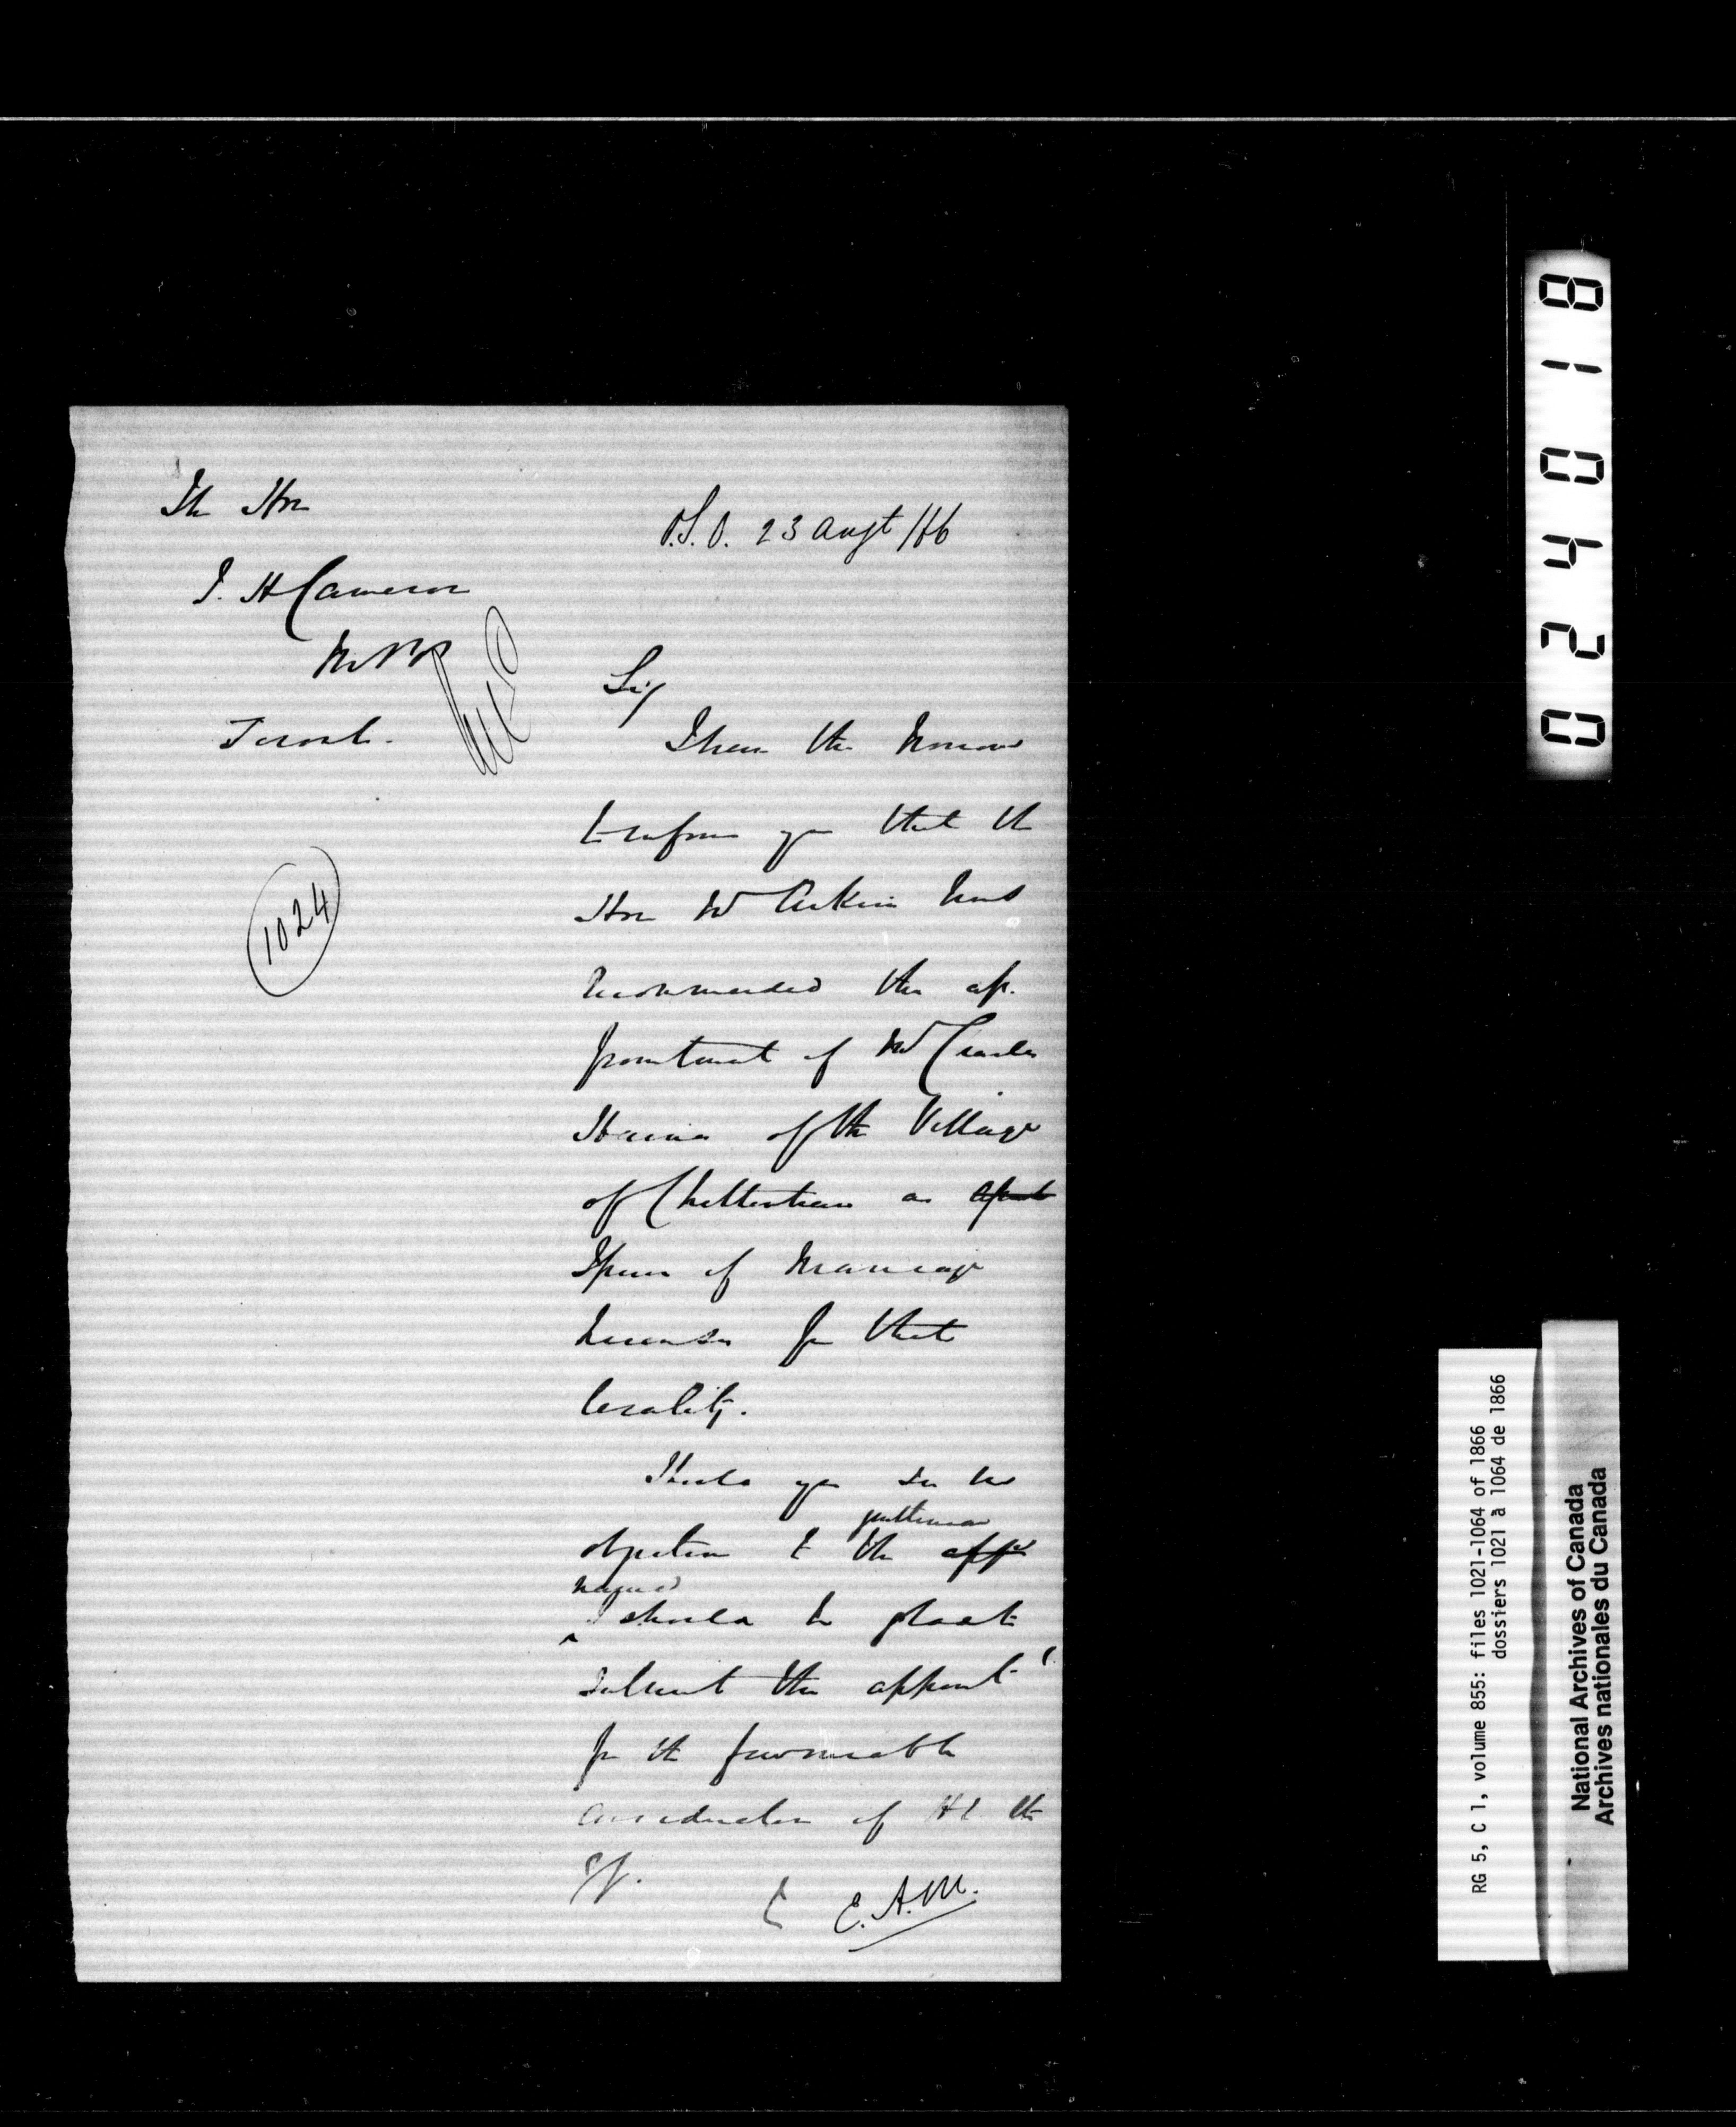 The Hon
J. H Cameron
M.P.P
Toronto.
P.S.O. 23 Augt /66
1024
Sir,
I have the honour
to inform you that the
Hon Mr Aikins has
recommended the ap-
pointment of Mr Charles
Haines of the Village
of Cheltenham as
Issuer of Marriage
Licenses for that
locality.
Should you see no
gentleman
objection to the appt
named
I should be glad to
submit the appointt
for the favourable
consideration of H E the
E. A. M.
0 2 4 0 1 8
RG 5, C 1, volume 855: files 1021-1064 of 1866
dossiers 1021 à 1064 de 1866
National Archives of Canada
Archives nationales du Canada